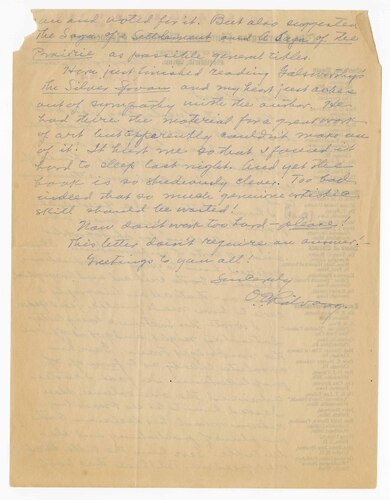 and voted for it. But also suggested
the Saga of a Settlement and a Saga of the
Prairie as possible general titles.
Have just finished reading Galsworthy's
the Silver Spoon and my heart just aches
out of sympathy with the author. He
had there the material for a great work
of art but apparently couldn't make use
of it. It hurt me so that I found it
hard to sleep last night. And yet the
book is so studiously clever. Too bad
indeed that so much genuine artistic
skill should be wasted!
Now don't work too hard - please!
This letter doesn't require an answer! -
Greetings to you all!
Sincerely
O. E. Rölvaag